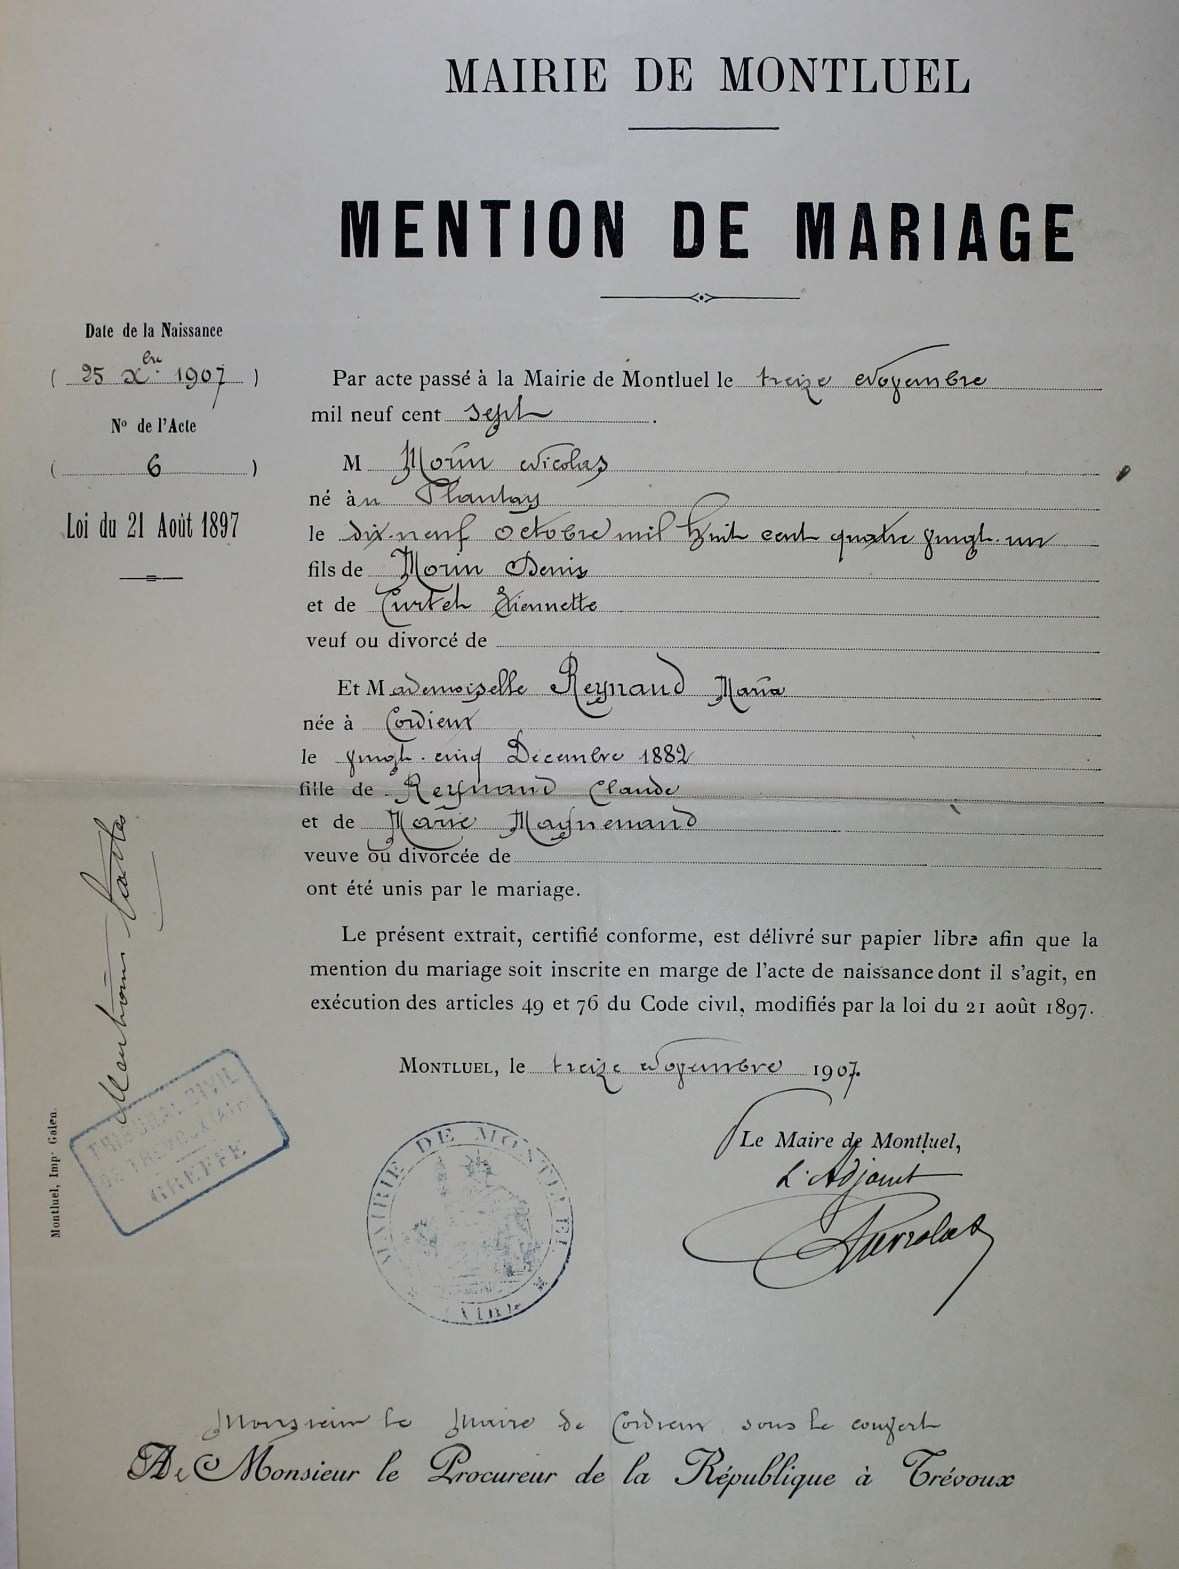 MAIRIE DE MONTLUEL
MENTION DE MARIAGE
Date de la Naissance
( 25 Xbre 1907 )
No de l'Acte
( 6 )
Loi du 21 Août 1897
Par acte passé à la Mairie de Montluel le treize Novembre
mil neuf cent sept.
M Morin Nicolas
né àu Plantay
le dix-neuf octobre mil huit cent quatre vingt-un
fils de Morin Denis
et de Curtet Etiennette
veuf ou divorcé de
Et Mademoiselle Reynaud Maria
née à Cordieux
le vingt-cinq Décembre 1882
fille de Reynaud Claude
et de Marie
veuve ou divorcée de
ont été unis par le mariage.
Le présent extrait, certifié conforme, est délivré sur papier libre afin que la
mention du mariage soit inscrite en marge de l'acte de naissance dont il s'agit, en
exécution des articles 49 et 76 du Code civil, modifiés par la loi du 21 août 1897.
MONTLUEL, le treize Novembre 1907.
Le Maire de Montluel,
L'Adjoint
MAIRIE DE MONTLUEL
TRIBUNAL CIVIL
DE TREVOUX (AIN)
GREFFE
Montluel, Imp. Galea.
Monsieur le Maire de Cordieux sous le couvert
De Monsieur le Procureur de la République à Trévoux